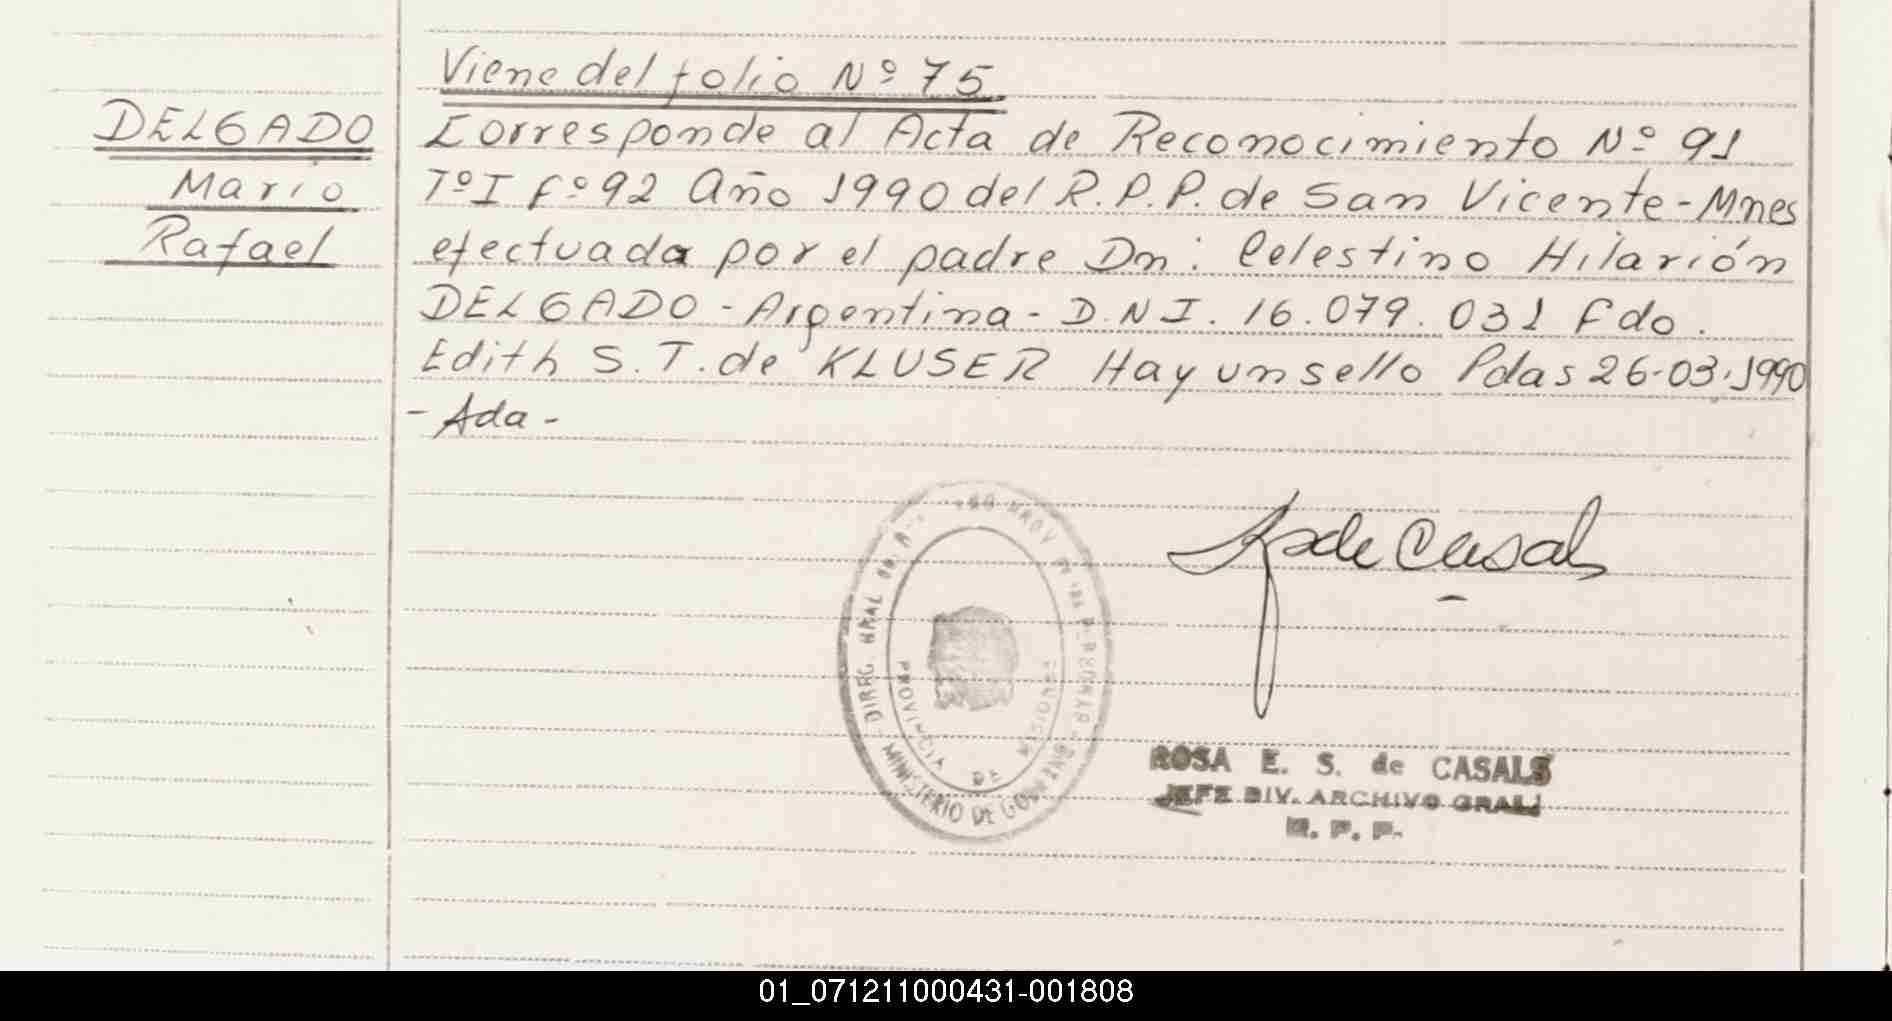 Viene del folio Nº 75
DELGADO
Mario
Rafael
Corresponde al Acta de Reconocimiento Nº 91
TºI fº 92 Año 1990 del R.P.P. de San Vicente - Mnes
efectuada por el padre Dn: Celestino Hilarión
DELGADO - Argentina - D.N.I. 16.079.031 Fdo.
Edith S.T. de KLUSER Hay un sello Pdas 26-03-1990
- Ada -
de Casals
DIREC. GRAL
MINISTERIO DE GOBIERNO
PROVINCIA DE MISIONES
ROSA E. S. de CASALS
JEFE DIV. ARCHIVO GRAL.
R. P. P.
01_071211000431-001808